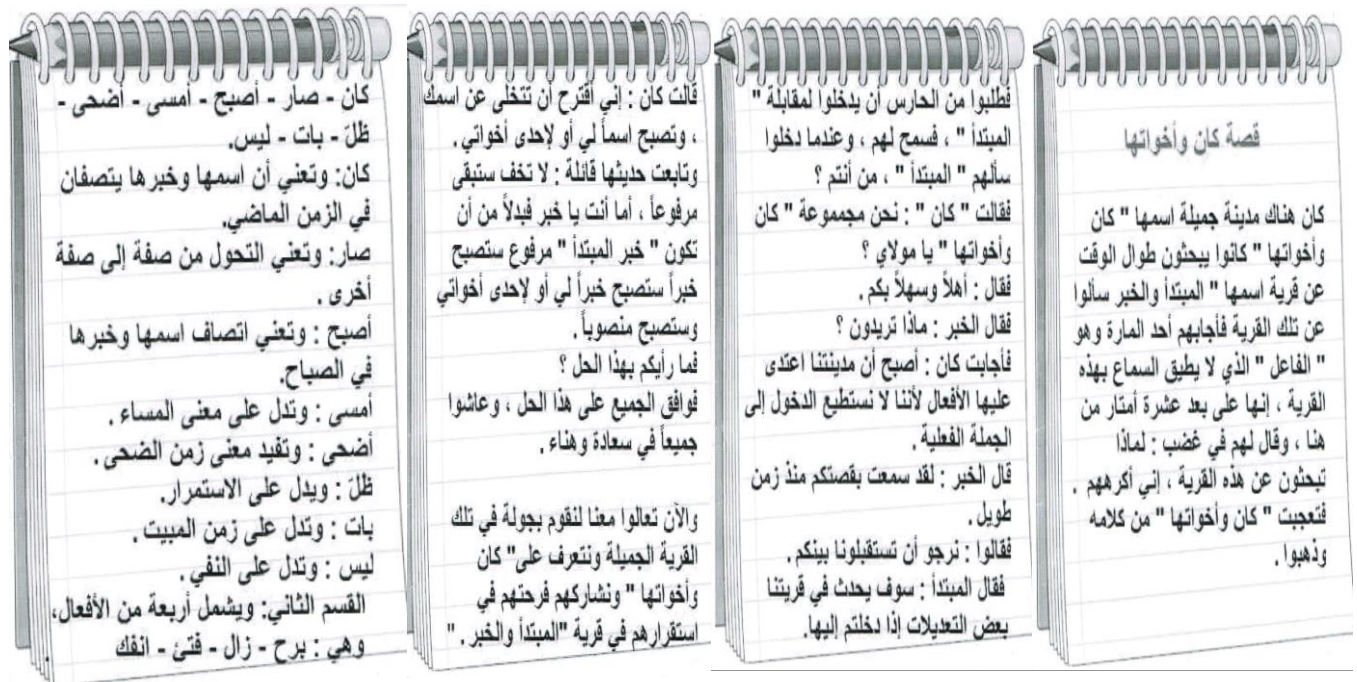 قصة كان وأخواتها
كان هناك مدينة جميلة اسمها " كان
وأخواتها " كانوا يبحثون طوال الوقت
عن قرية اسمها " المبتدأ والخبر سألوا
عن تلك القرية فأجابهم أحد المارة وهو
" الفاعل " الذي لا يطيق السماع بهذه
القرية ، إنها على بعد عشرة أمتار من
هنا ، وقال لهم في غضب : لماذا
تبحثون عن هذه القرية ، إني أكرههم .
فتعجبت " كان وأخواتها " من كلامه
وذهبوا .
فطلبوا من الحارس أن يدخلوا لمقابلة "
المبتدأ " ، فسمح لهم ، وعندما دخلوا
سألهم " المبتدأ " ، من أنتم ؟
فقالت " كان " : نحن مجموعة " كان
وأخواتها " يا مولاي ؟
فقال : أهلاً وسهلاً بكم .
فقال الخبر : ماذا تريدون ؟
فأجابت كان : أصبح أن مدينتنا اعتدى
عليها الأفعال لأننا لا نستطيع الدخول إلى
الجملة الفعلية .
قال الخبر : لقد سمعت بقصتكم منذ زمن
طويل .
فقالوا : نرجو أن تستقبلونا بينكم .
فقال المبتدأ : سوف يحدث في قريتنا
بعض التعديلات إذا دخلتم إليها.
قالت كان : إني أقترح أن تتخلى عن اسمك
، وتصبح اسماً لي أو لإحدى أخواتي .
وتابعت حديثها قائلة : لا تخف ستبقى
مرفوعاً ، أما أنت يا خبر فبدلاً من أن
تكون " خبر المبتدأ " مرفوع ستصبح
خبراً ستصبح خبراً لي أو لإحدى أخواتي
وستصبح منصوباً .
فما رأيكم بهذا الحل ؟
فوافق الجميع على هذا الحل ، وعاشوا
جميعاً في سعادة وهناء .
والآن تعالوا معنا لنقوم بجولة في تلك
القرية الجميلة ونتعرف على" كان
وأخواتها " ونشاركهم فرحتهم في
استقرارهم في قرية "المبتدأ والخبر . "
كان - صار - أصبح - أمسى - أضحى -
ظلّ - بات - ليس.
كان: وتعني أن اسمها وخبرها يتصفان
في الزمن الماضي.
صار: وتعني التحول من صفة إلى صفة
أخرى .
أصبح : وتعني اتصاف اسمها وخبرها
في الصباح.
أمسى : وتدل على معنى المساء .
أضحى : وتفيد معنى زمن الضحى .
ظلّ : ويدل على الاستمرار.
بات : وتدل على زمن المبيت .
ليس : وتدل على النفي .
القسم الثاني: ويشمل أربعة من الأفعال،
وهي : برح - زال - فتئ - انفك .